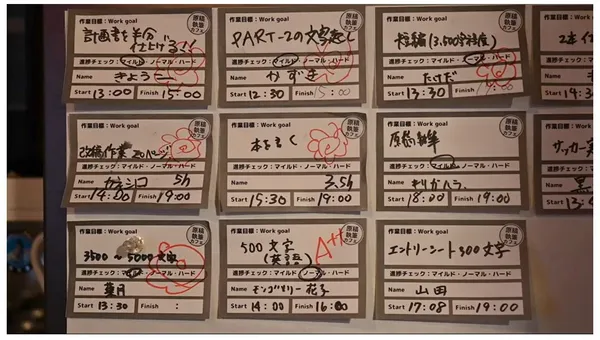 作業目標：Work goal
原稿執筆カフェ
計画書を半分
仕上げる!!
進捗チェック：マイルド・ノーマル・ハード
Name きょうこ
Start 13:00 Finish 15:00
作業目標：Work goal
原稿執筆カフェ
PART-2の文字起し
進捗チェック：マイルド・ノーマル・ハード
Name かずき
Start 12:30 Finish 15:00
作業目標：Work goal
原稿執筆カフェ
短編(3,500字程度)
進捗チェック：マイルド・ノーマル・ハード
Name たけだ
Start 13:30 Finish
作業目標
進捗チェ
Name
Start
作業目標：Work goal
原稿執筆カフェ
改稿作業 20ページ
進捗チェック：マイルド・ノーマル・ハード
Name カネシコ 5h
Start 14:00 Finish 19:00
作業目標：Work goal
原稿執筆カフェ
本を書く
進捗チェック：マイルド・ノーマル・ハード
Name 3.5h
Start 15:30 Finish 19:00
作業目標：Work goal
原稿執筆カフェ
原稿執筆
進捗チェック：マイルド・ノーマル・ハード
Name
Start 18:00 Finish 19:00
作業目標
サッカー
進捗チェ
Name
Start
作業目標：Work goal
原稿執筆カフェ
3500～5000文字
進捗チェック：マイルド・ノーマル・ハード
Name 葉月
Start 13:30 Finish :
作業目標：Work goal
原稿執筆カフェ
500文字
(英語)
A++
進捗チェック：マイルド・ノーマル・ハード
Name モンゴメリー花子
Start 14:00 Finish 16:00
作業目標：Work goal
原稿執筆カフェ
エントリーシート300文字
進捗チェック：マイルド・ノーマル・ハード
Name 山田
Start 17:08 Finish 19:00